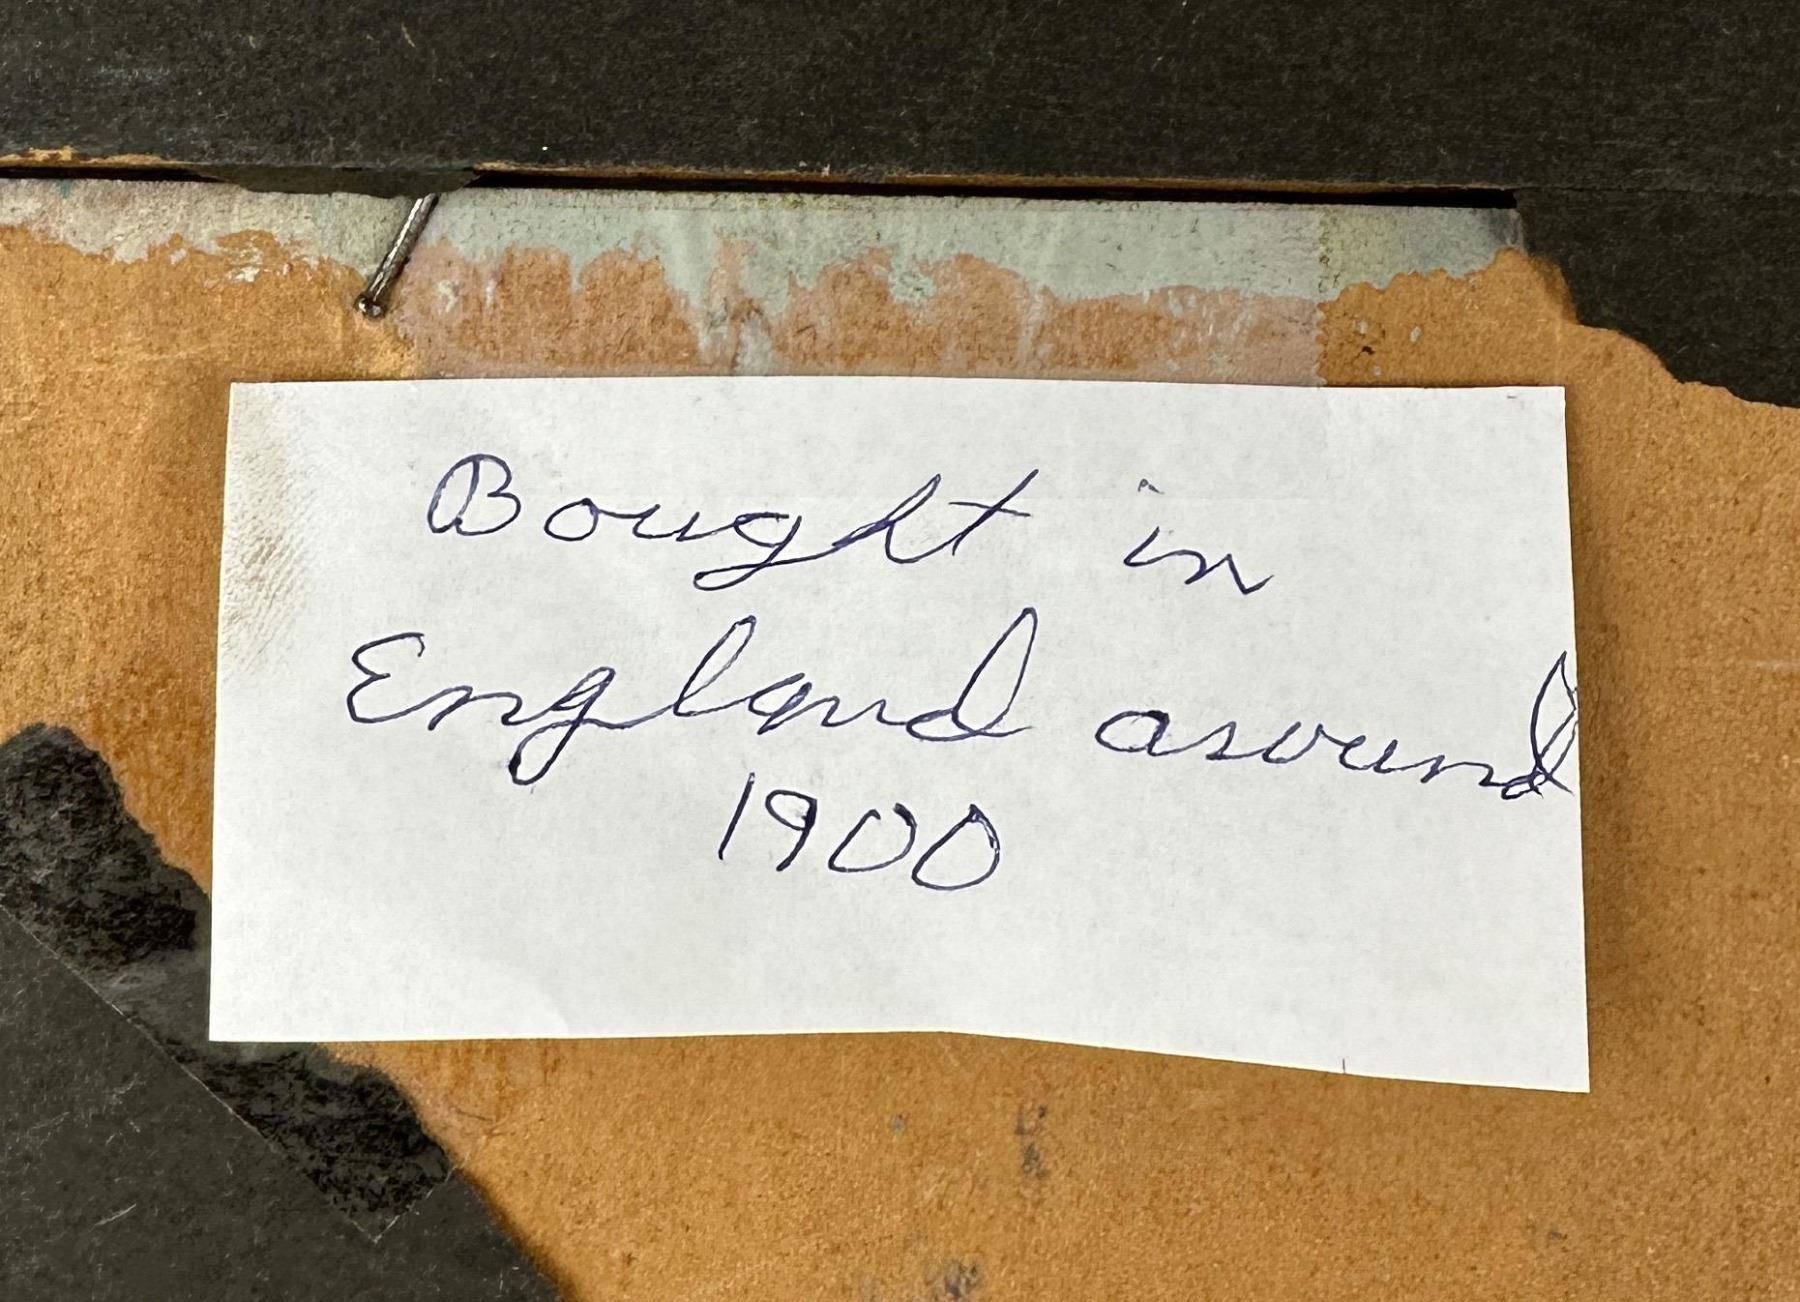 Bought in
England around
1900